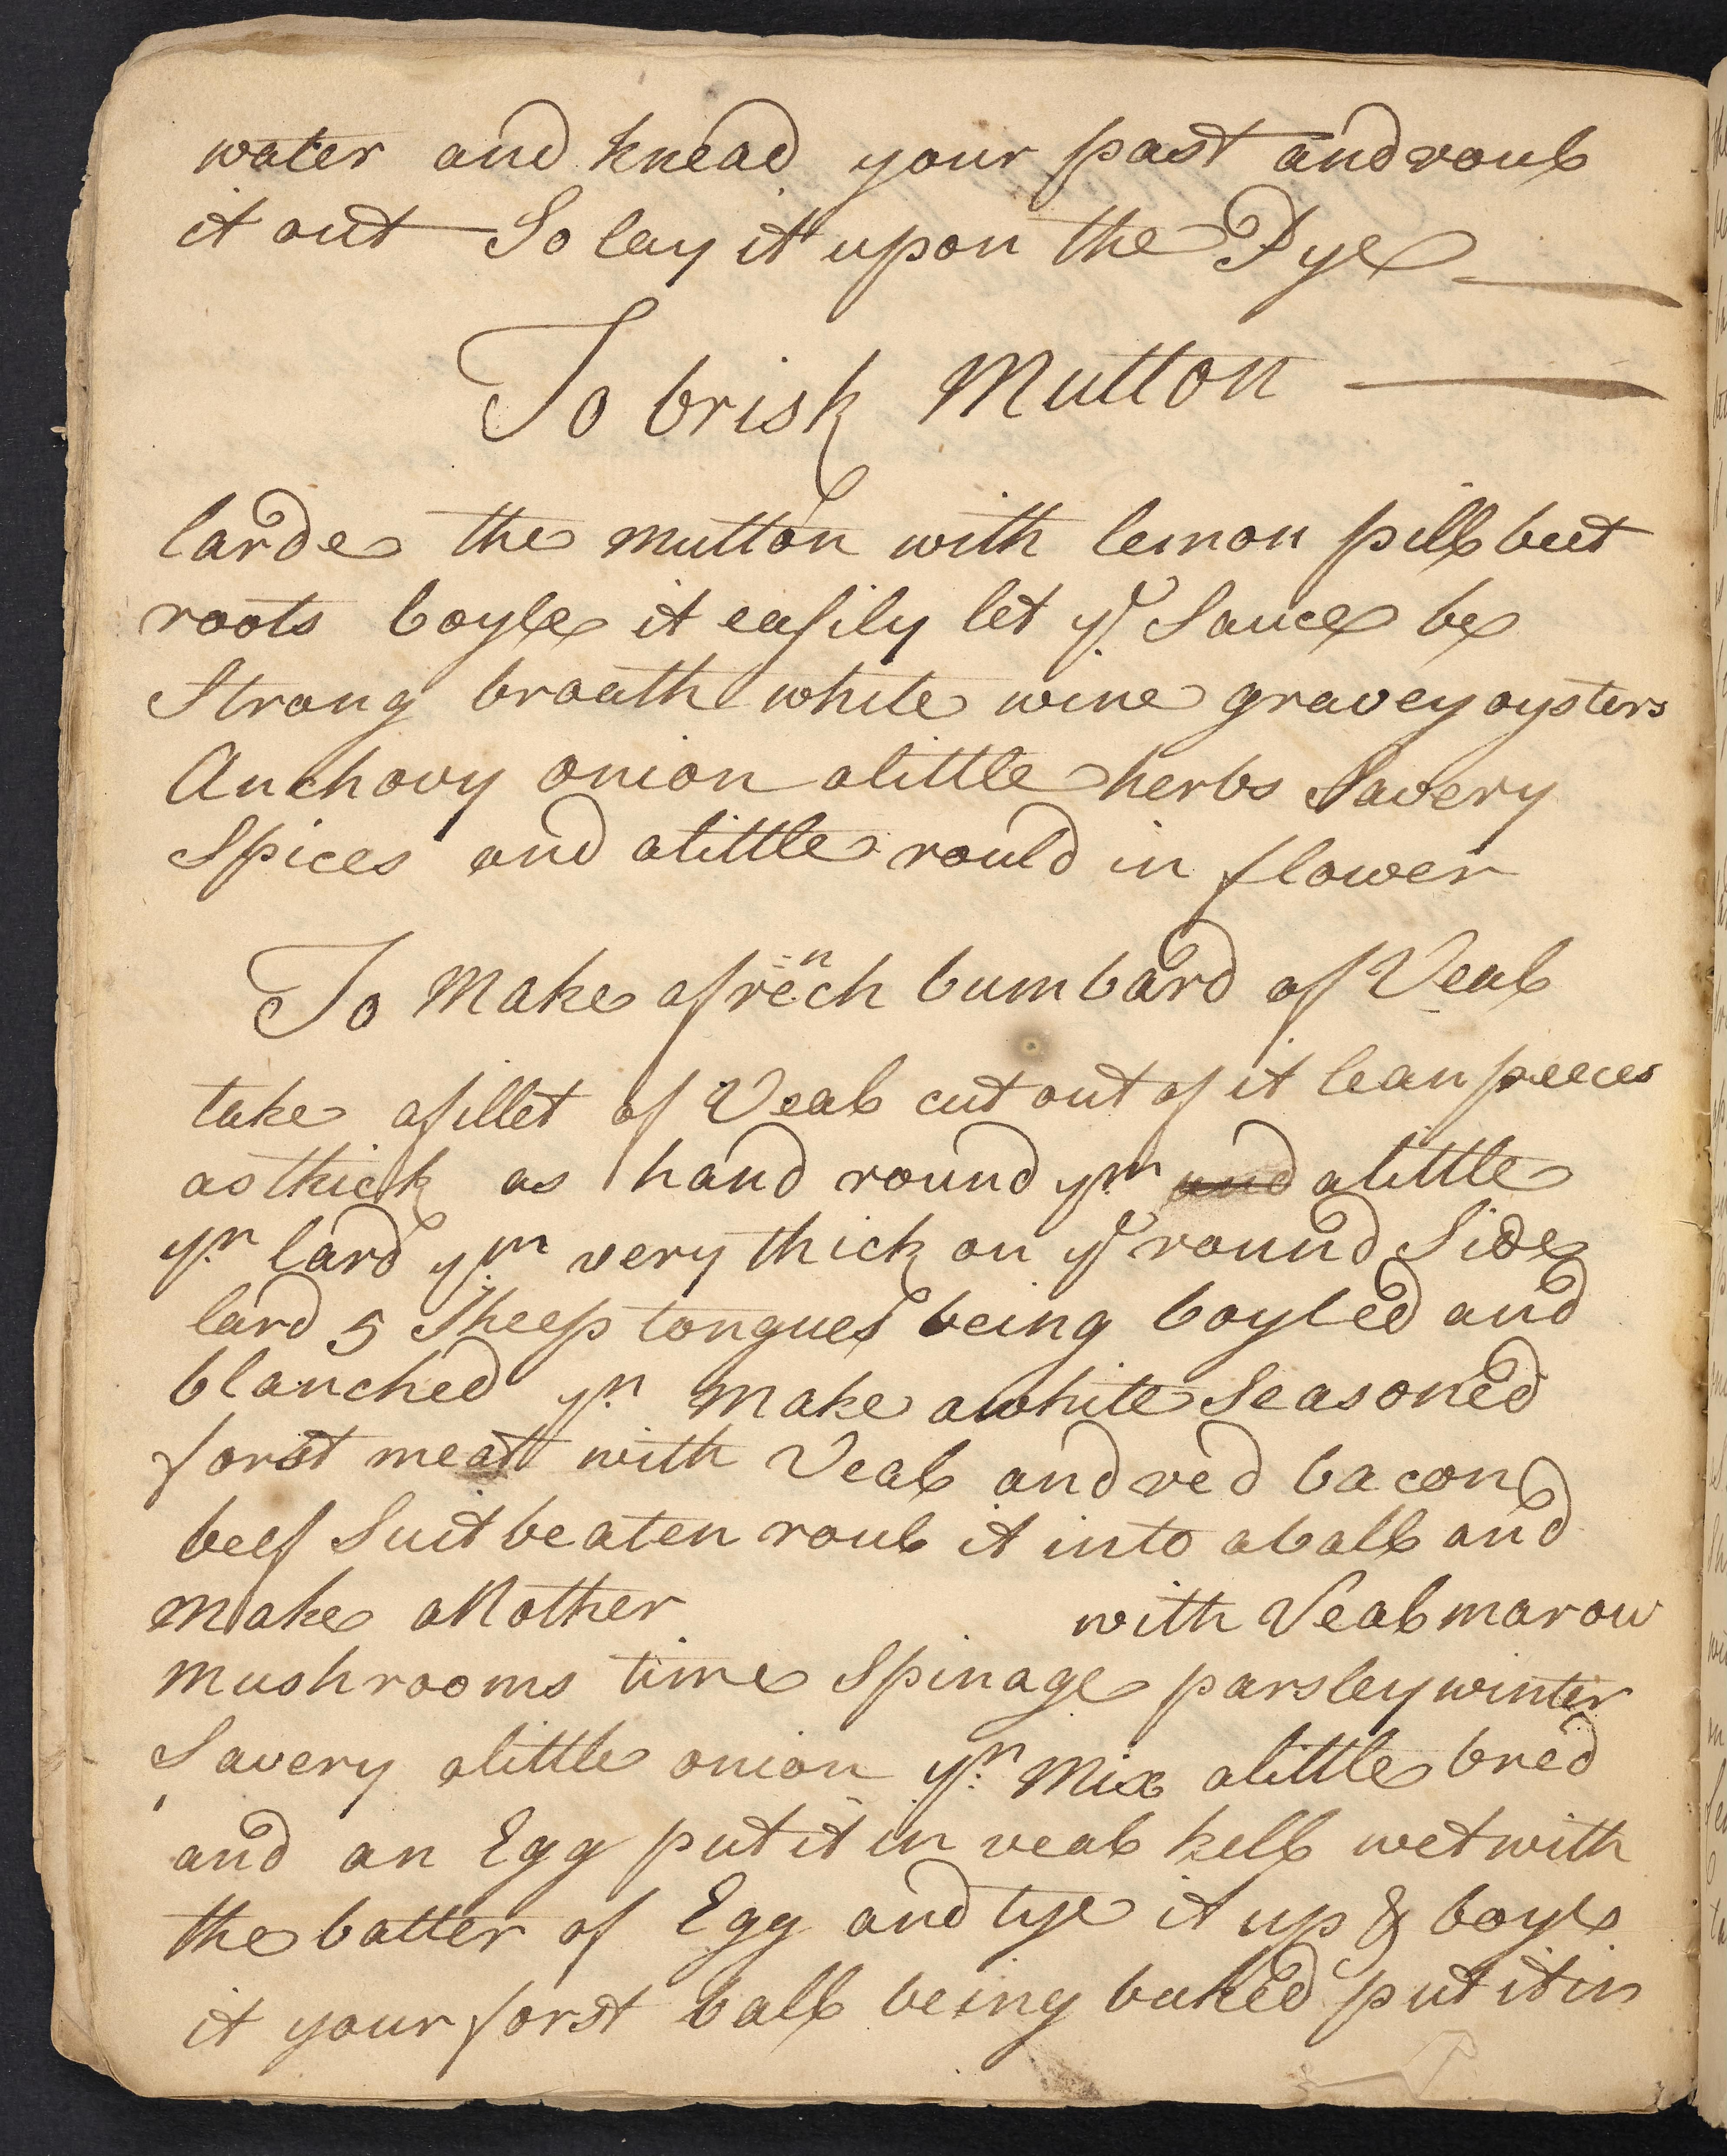 water and knead your past and roul
it out So lay it upon the Pye
To brisk Mutton
larde the mutton with lemon pill beet
roots boyle it easily let ye Sauce be
Strong broath white wine gravey oysters
Anchovy onion a little herbs Savery
Spices and a little rould in flower
To Make a french bumbard of Veal
take a fillet of Veal cut out of it lean peeces
as thick as hand round ym and a little
yn lard ym very thick on ye round Side
lard 5 Sheep tongues being boyled and
blanched yn Make a white Seasoned
forst meatt with Veal and red bacon
beef Suit beaten roul it into a ball and
Make aNother with Veal marow
Mushrooms time Spinage parsley winter
Savery a little onion yn Mix a little bred
and an Egg put it in veal kell wet with
the batter of Egg and tye it up & boyle
it your forst ball being baked put it in